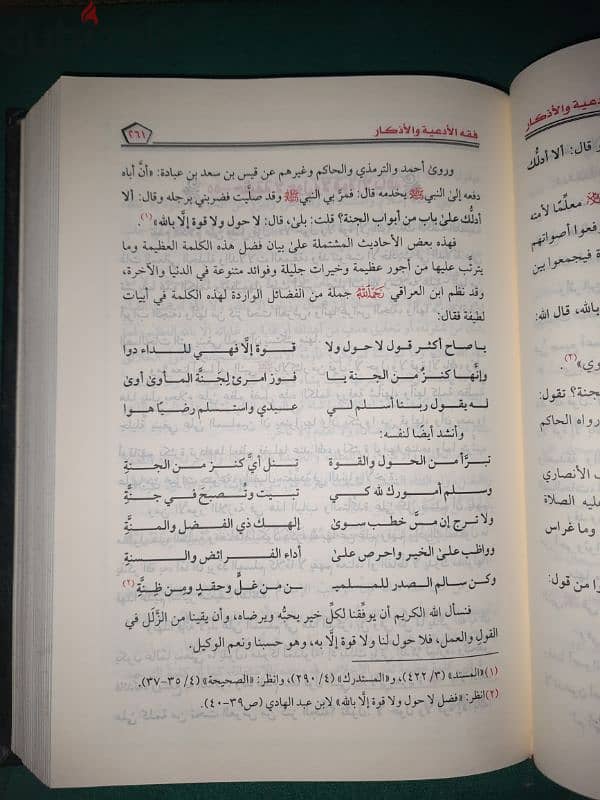 فقه الأدعية والأذكار
٢٦١
وروىٰ أحمد والترمذي والحاكم وغيرهم عن قيس بن سعد بن عبادة: «أنَّ أباه
دفعه إلىٰ النبي ﷺ يخدمه قال: فمرَّ بي النبي ﷺ وقد صلَّيت فضربني برجله وقال: ألا
أدلك علىٰ باب من أبواب الجنة؟ قلت: بلىٰ، قال: لا حول ولا قوة إلَّا بالله»(١).
فهذه بعض الأحاديث المشتملة علىٰ بيان فضل هذه الكلمة العظيمة وما
يترتَّب عليها من أجور عظيمة وخيرات جليلة وفوائد متنوعة في الدنيا والآخرة،
وقد نظم ابن العراقي رَحِمَهُ اللَّهُ جملة من الفضائل الواردة لهذه الكلمة في أبيات
لطيفة فقال:
يا صاح أكثر قول لا حول ولا قوة إلَّا فهي للداء دوا
وإنَّها كنزٌ من الجنة يا فوز امرئ لِجَنَّة المأوىٰ أوىٰ
له يقول ربنا أسلم لي عبدي واستسلم رضيًا هوا
وأنشد أيضًا لنفسه:
تبرَّأ من الحول والقوة تنل أيَّ كنز من الجنةِ
وسلم أمورك لله كي تبيت وتُصبح في جنَّةِ
ولا ترج إن مسَّ خطب سوىٰ إلهك ذي الفضل والمنَّةِ
وواظب علىٰ الخير واحرص علىٰ أداء الفرائض والسنةِ
وكن سالم الصدر للمسلميـ ـن من غلٍّ وحقد ومن ظِنَّةِ(٢)
فنسأل الله الكريم أن يوفِّقنا لكلِّ خير يحبُّه ويرضاه، وأن يقينا من الزَّلَل في
القولِ والعمل، فلا حول لنا ولا قوة إلَّا به، وهو حسبنا ونعم الوكيل.
(١) «المسند» (٣/ ٤٢٢)، و«المستدرك» (٤/ ٢٩٠)، وانظر: «الصحيحة» (٤/ ٣٥-٣٧).
(٢) انظر: «فضل لا حول ولا قوة إلَّا بالله» لابن عبد الهادي (ص٣٩-٤٠).
قال: ألا أدلُّك
معلِّمًا لأمته
أصواتهم
فيجمعوا بين
بالله، قال الله:
(٢).
الجنة؟ تقول:
رواه الحاكم
الأنصاري
عليه الصلاة
وما غراس
من قول: